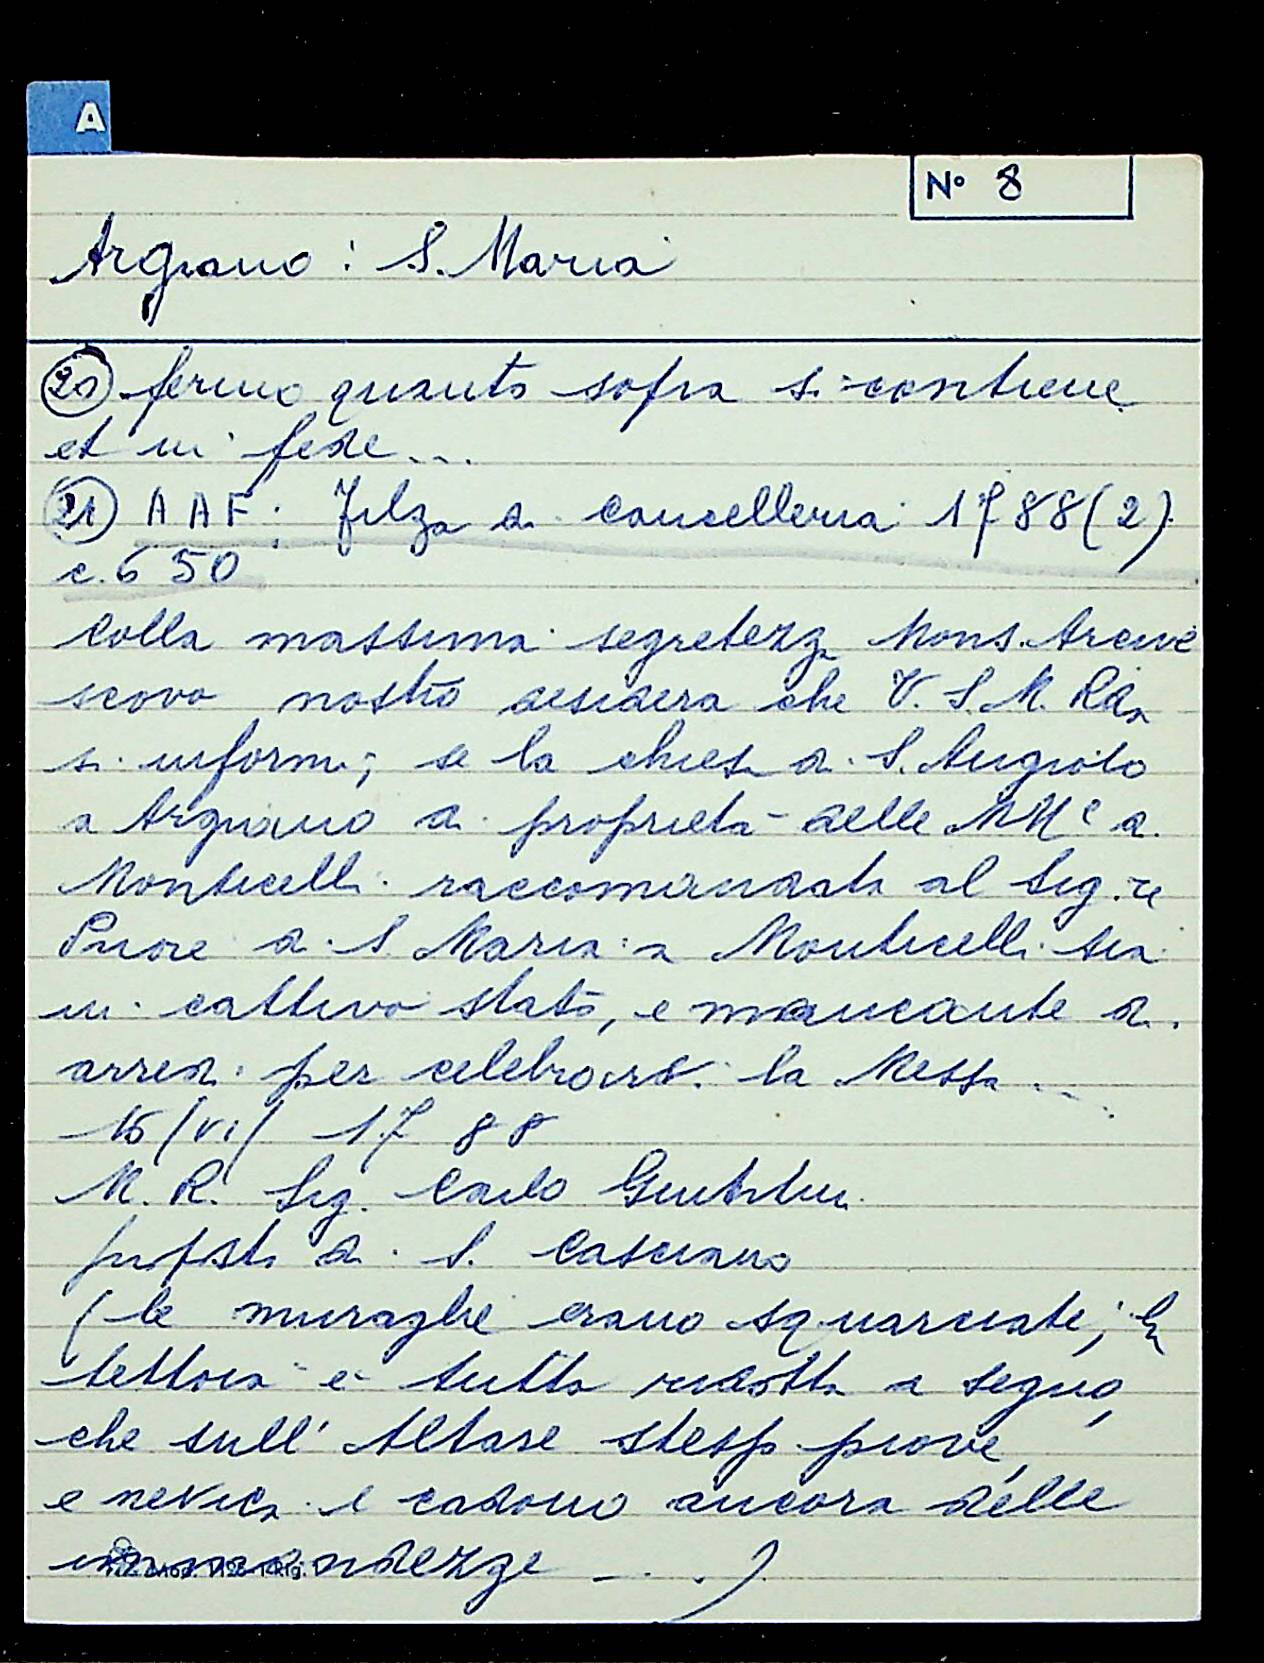 A
N° 8
Argiano: S. Maria
20) fermo quanto sopra si contiene
et in fede...
21) AAF: Filza di Cancelleria 1788 (2)
c. 650
Colla massima segretezza Mons. Arcive
scovo nostro desidera che V. S. M. Rda
si informi; se la chiesa di S. Angiolo
a Argiano di proprietà delle MMe di
Monticelli raccomandata al Sig.re
Priore di S. Maria a Monticelli sia
in cattivo stato, e mancante di
arredi per celebrarvi la Messa...
16/VI/1788
M. R. Sig. Carlo
proposto di S. Casciano
(le muraglie erano squarciate; la
tettoia è tutta ridotta a segno,
che sull' Altare stesso piove,
e nevica e cadono ancora delle
immondezze ...)